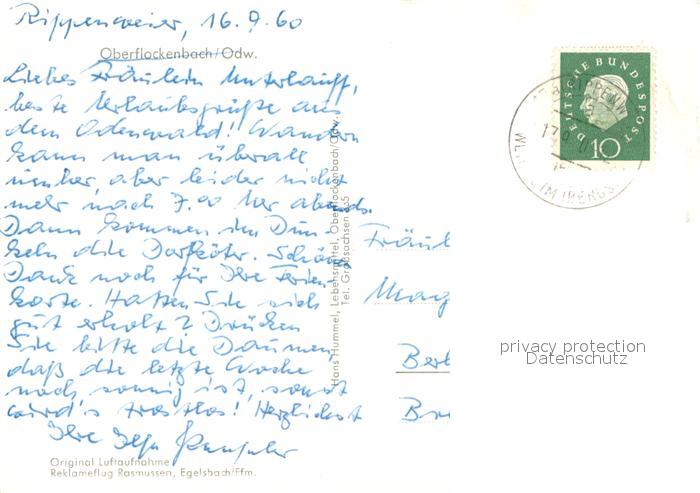 Rippenweier, 16.9.60
Oberflockenbach/Odw.
Liebes Fräulein Unterlauff,
beste Urlaubsgrüße aus
dem Odenwald! Wandern
kann man überall
umher, aber leider nicht
mehr nach 7.00 Uhr abends.
Dann kommen im Dun-
keln die Dorfköter. Schön
Dank noch für Ihre Ferien
karte. Hatten Sie sich
gut erholt? Drücken
Sie bitte die Daumen
daß die letzte Woche
noch sonnig ist, sonst
wird's trostlos! Herzlichst
Ihre Ilse
Original Luftaufnahme
Reklameflug Rasmussen, Egelsbach/Ffm.
Hans Hummel, Lebensmittel, Oberflockenbach/Odw.
Tel. Großsachsen
DEUTSCHE BUNDESPOST
10
Fräul
Marg
Berl
Bri
privacy protection
Datenschutz